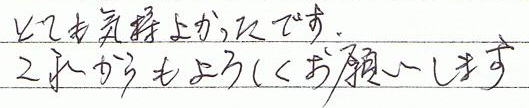 とても気持よかったです.
これからもよろしくお願いします